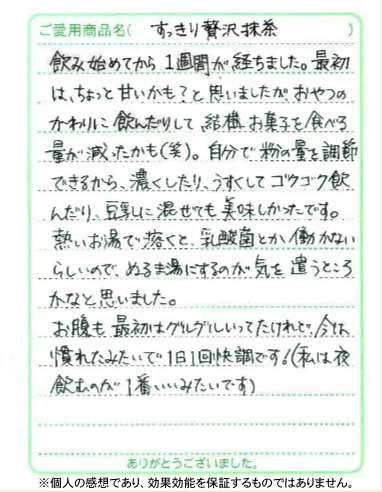 ご愛用商品名( すっきり贅沢抹茶 )
飲み始めてから1週間が経ちました。最初
は、ちょっと甘いかも?と思いましたが、おやつの
かわりに飲んだりして結構お菓子を食べる
量が減ったかも(笑)。自分で粉の量を調節
できるから、濃くしたり、うすくしてゴクゴク飲
んだり、豆乳に混ぜても美味しかったです。
熱いお湯で溶くと、乳酸菌とか働かない
らしいので、ぬるま湯にするのが気を遣うところ
かなと思いました。
お腹も最初はグルグルいってたけれど、今は
慣れたみたいで1日1回快調です!(私は夜
飲むのが1番いいみたいです)
ありがとうございました。
※個人の感想であり、効果効能を保証するものではありません。